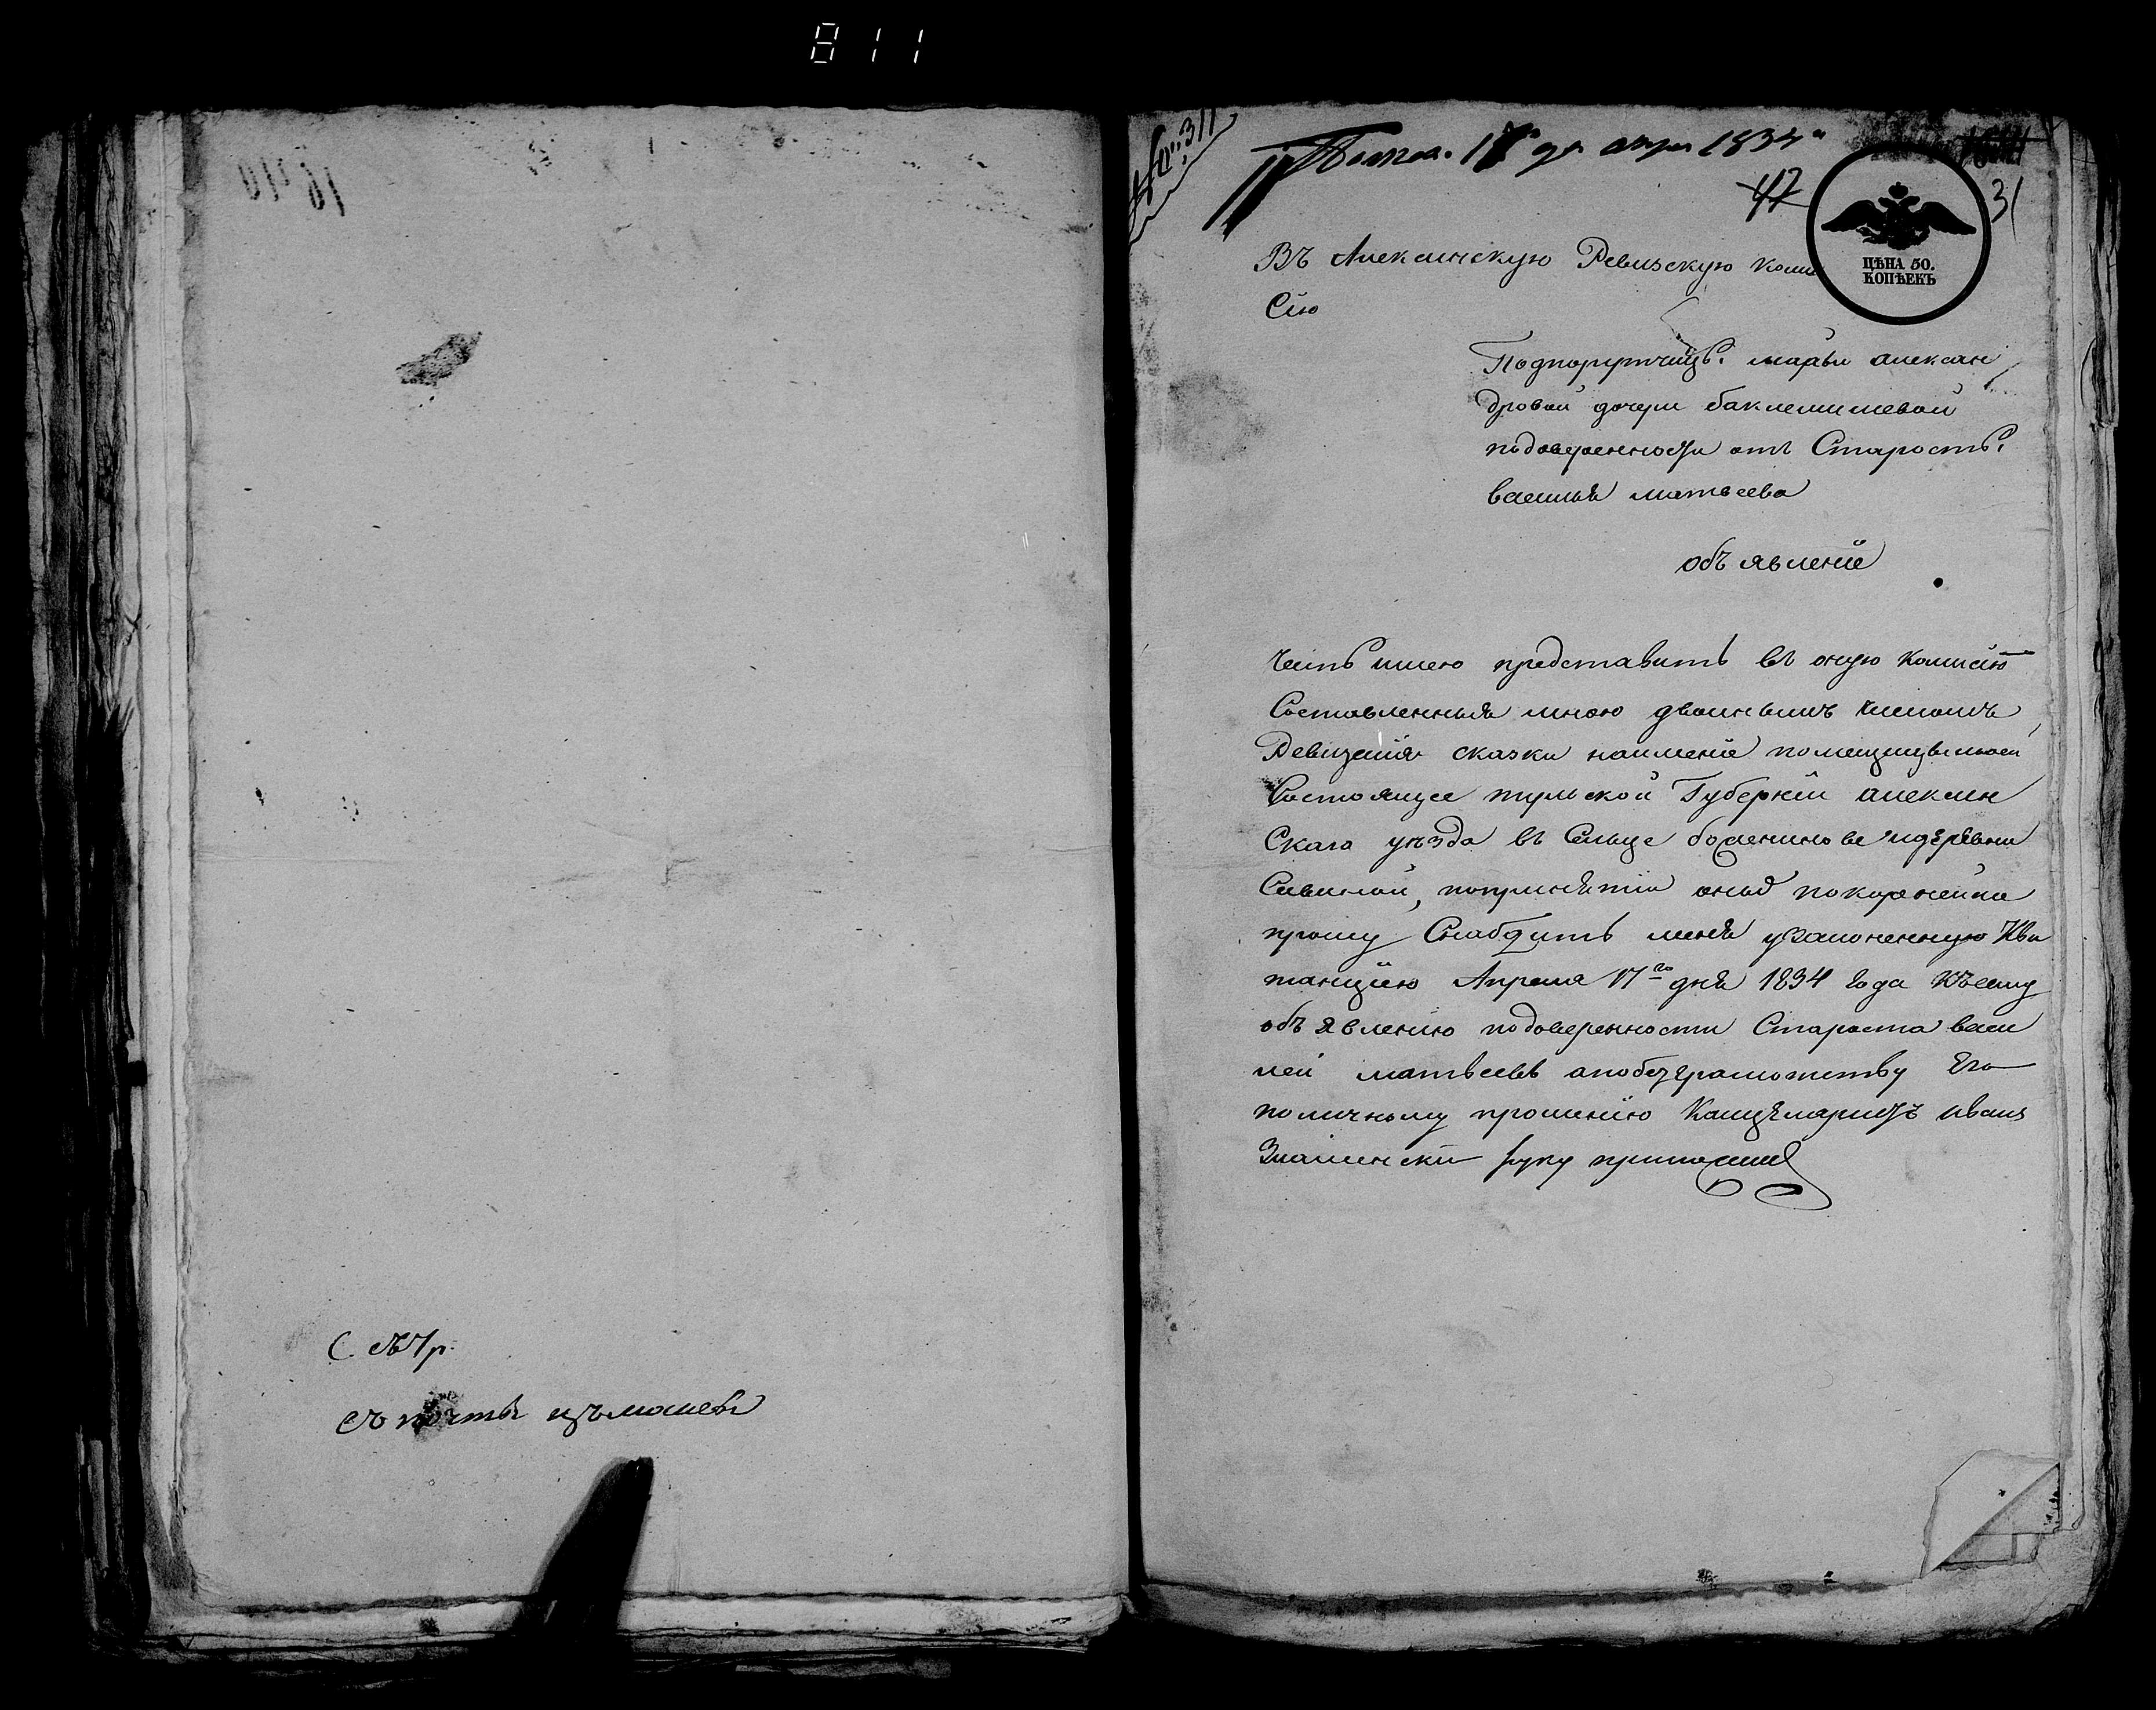 811
№ 311
17 дня апре 1834"
42
31
ЦѢНА 50.
КОПѢЕКЪ
Въ Алексинскую Ревизскую коми
Сїю
Подпорутчицы марьи алексан
дровой дочери баклемишевой
подоверенности отъ Старосты
василья матвеева
объявленїе
Честь имею представить въ оную комисїю
Составленныя мною двоинымъ числомъ
Ревизския сказки наименїе помещицы моей
Состоящее тульской Губернїи алексин
Скаго уезда въ Сельце
Савиной, попринятїи оныхъ покорнейше
прошу Снабдить меня узаконенную Кви
танцїею Апреля 17го дня 1834 года Къ сему
объявленїю подоверенности Староста васи
лей матвеевъ апобезграмотству Его
поличному прошенїю Канцеляристъ иванъ
Знаменскїй руку приложилъ